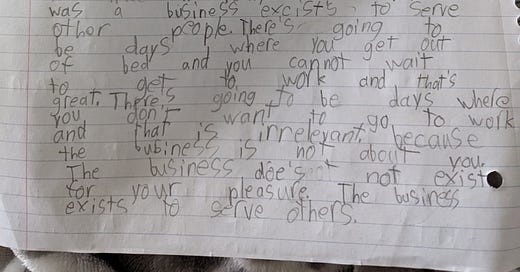 was a business excists to serve
other people. There's going to
be days where you get out
of bed and you cannot wait
to get to work and that's
great. There's going to be days where
you don't want to go to work
and that is irrelevant, because
the business is not about you.
The business doe's not exist
for your pleasure. The business
exists to serve others.